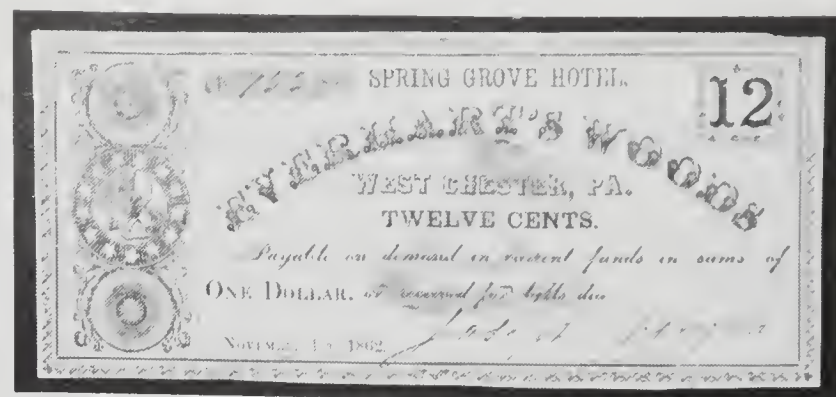 SPRING GROVE HOTEL.
12
EVERHART'S WOODS
WEST CHESTER, PA.
TWELVE CENTS.
Payable on demand in current funds in sums of
ONE DOLLAR, or received for bills due
NOVEMBER 1862